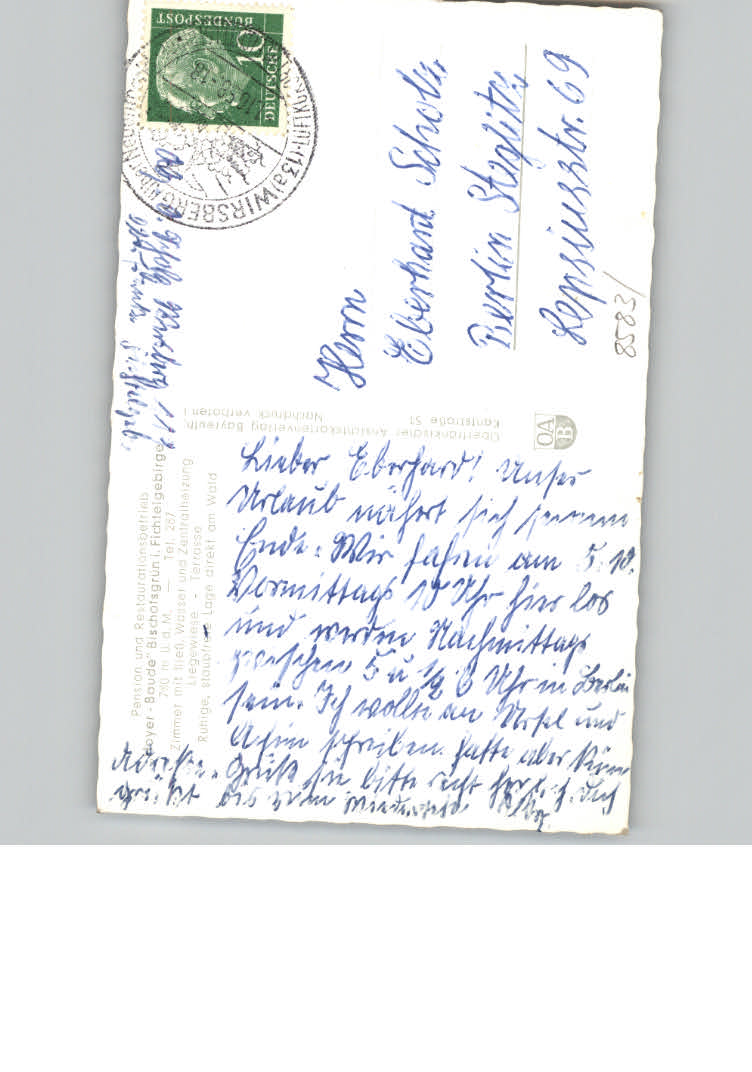 DEUTSCHE
BUNDESPOST
10
(13a) WIRSBERG
Herrn
Eberhard Scholz
Berlin Steglitz
Lepsiusstr. 69
8583/
Pension und Restaurationsbetrieb
"Boyer-Baude" Bischofsgrün i. Fichtelgebirge
790 m ü. d. M. - Tel. 287
Zimmer mit fließ. Wasser und Zentralheizung
Liegewiese - Terrasse
Ruhige, staubfreie Lage direkt am Wald
Oberfränkischer Ansichtskartenverlag Bayreuth,
Kantstraße 51
Nachdruck verboten!
OA
B
Lieber Eberhard! Unser
Urlaub nähert sich seinem
Ende. Wir fahren am 5.10.
Vormittags 10 Uhr hier los
und werden Nachmittags
zwischen 5 u ½ 6 Uhr in Berlin
sein. Ich wollte an Ursel und
Achim schreiben hatte aber keine
Adresse. Grüße sie bitte recht herzlich. Dich
grüßt bis zum Wiedersehn